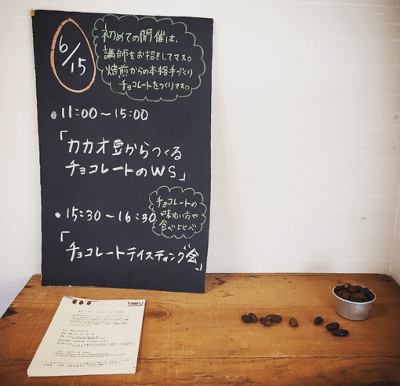 6/15
初めての開催は、
講師をお招きしてマス。
焙煎からの本格手づくり
チョコレートをつくりマス。
11:00〜15:00
「カカオ豆からつくる
チョコレートのWS」
15:30〜16:30
チョコレートの
味わい方や
食べ比べ
「チョコレートテイスティング会」